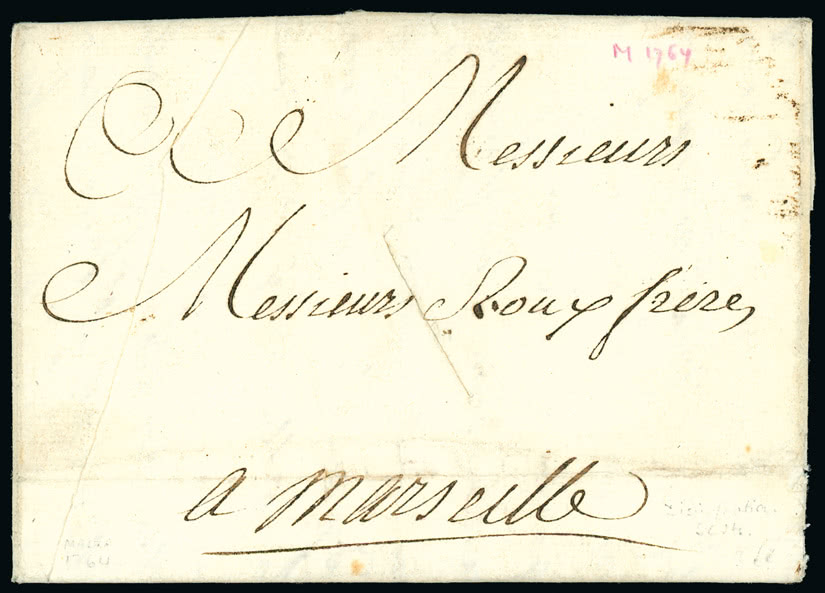 M 1764
Messieurs
Messieurs Roux freres
a Marseille
MALTA
1764